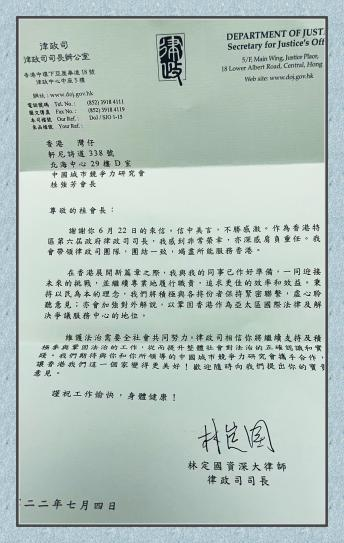 律政司
律政司司長辦公室
香港中環下亞厘畢道 18 號
律政中心中座 5 樓
網址：www.doj.gov.hk
電話號碼 Tel. No.: (852) 3918 4111
圖文傳真 Fax No.: (852) 3918 4119
本司檔號 Our Ref.: DoJ / SJO 1-15
來函檔號 Your Ref.:
律政
DEPARTMENT OF JUST
Secretary for Justice's Off
5/F, Main Wing, Justice Place,
18 Lower Albert Road, Central, Hong
Web site: www.doj.gov.hk
香港 灣仔
軒尼詩道 338 號
北海中心 29 樓 D 室
中國城市競爭力研究會
桂強芳會長
尊敬的桂會長：
謝謝你 6 月 22 日的來信，信中美言，不勝感激。作為香港特
區第六屆政府律政司司長，我感到非常榮幸，亦深感肩負重任。我
會帶領律政司團隊，團結一致，竭盡所能服務香港。
在香港展開新篇章之際，我與我的同事已作好準備，一同迎接
未來的挑戰，並繼續專業地履行職責，追求更佳的效率和效益。秉
持以民為本的理念，我們將積極與各持份者保持緊密聯繫，虛心聆
聽意見；亦會加強對外解說，以鞏固香港作為亞太區國際法律及解
決爭議服務中心的地位。
維護法治需要全社會共同努力。律政司相信你將繼續支持及積
極參與鞏固法治的工作，從而提升整體社會對法治的正確認識和實
踐。我們期待與你和你所領導的中國城市競爭力研究會攜手合作，
讓香港我們這一個家變得更美好！歡迎隨時向我們提出你的寶貴
意見。
謹祝工作愉快，身體健康！
林定國
林定國資深大律師
律政司司長
二二年七月四日